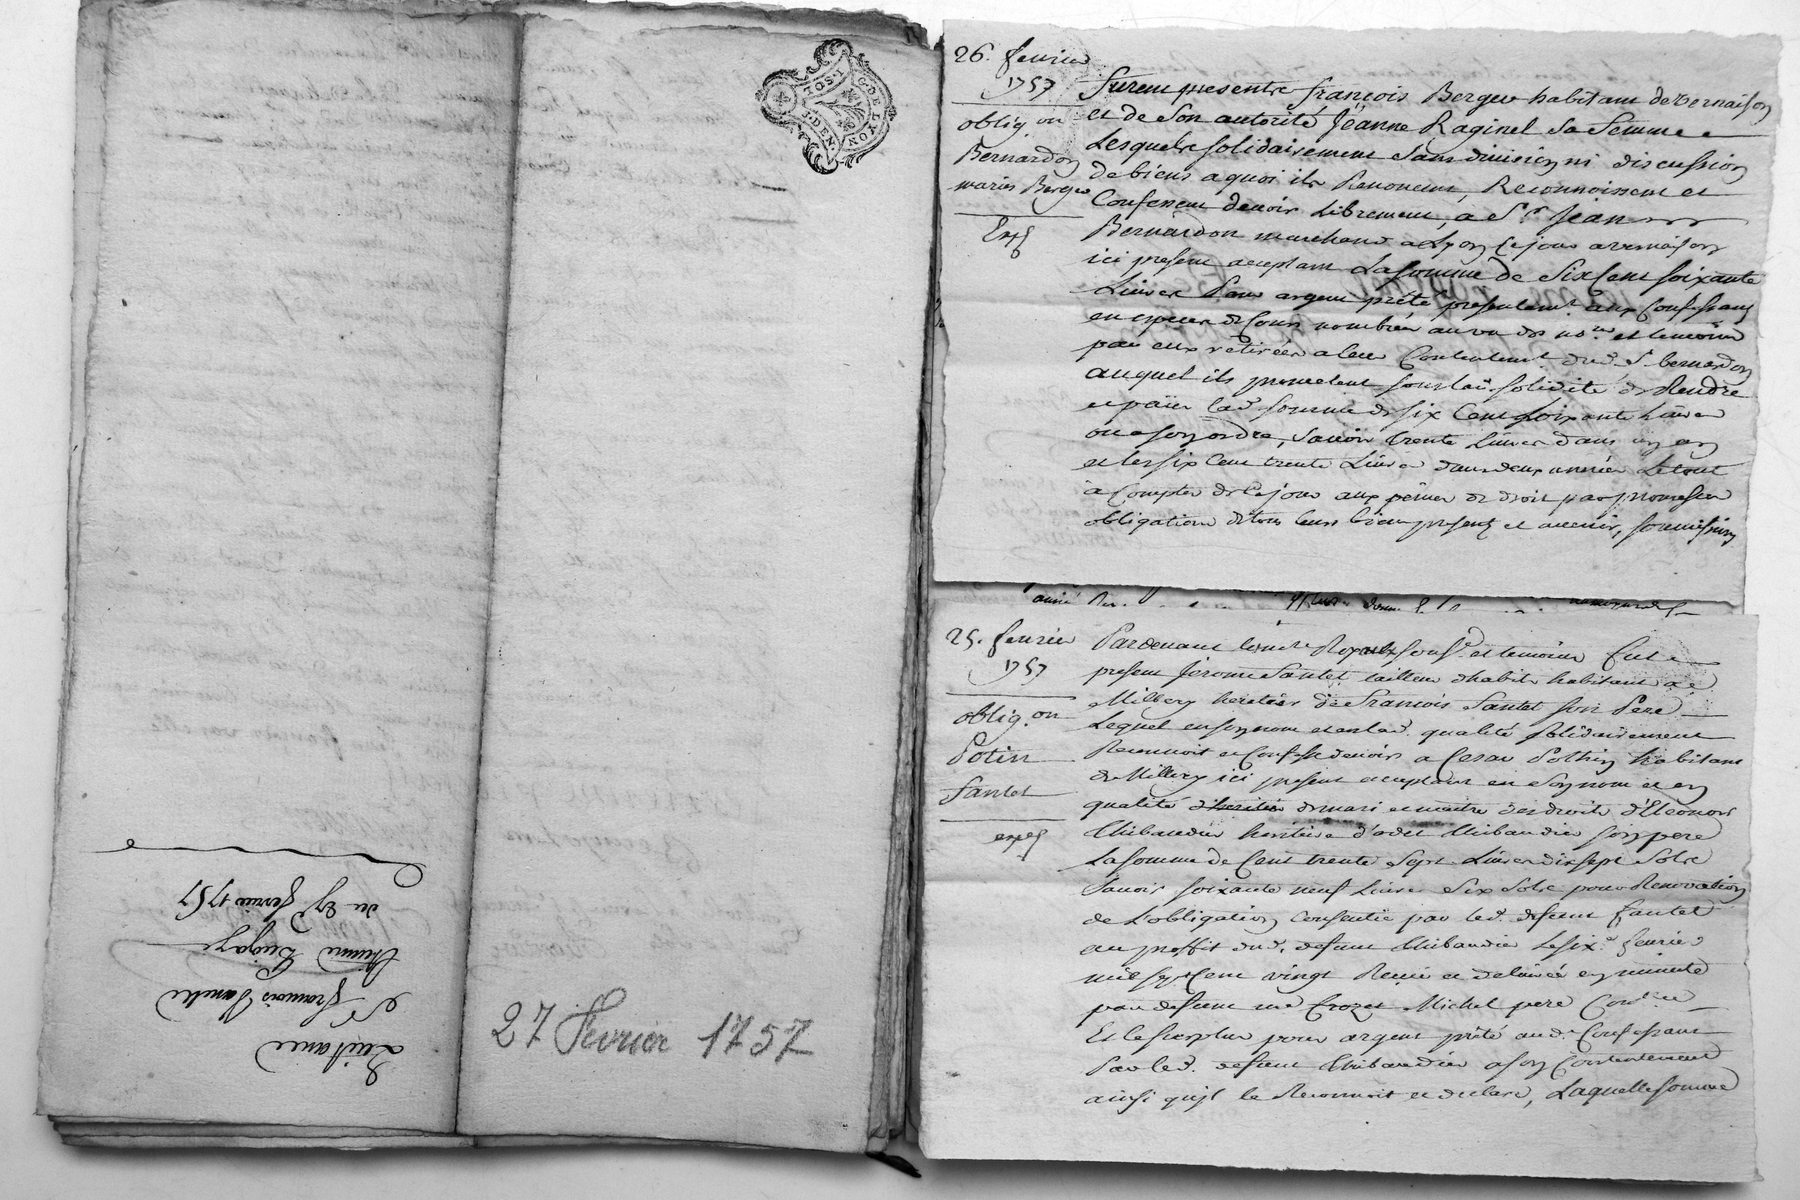 G. DE LYON
2 SOLS
J. DEN.
27 Fevrier 1757
Quittance
Sr. françois
Etienne
du 27 fevrier 1757
26. fevrier
1757
oblig.on
Bernardon
maries Berger
Expé
Furent presents françois Berger habitant de vernaison
et de Son autorité Jeanne Raginel Sa femme
Lesquels solidairement Sans division ni discussion
de biens a quoi ils Renoncent, Reconnoissent et
Confessent devoir Librement, a Sr. Jean
Bernardon marchand a Lyon Ce jour a vernaison
ici present acceptant La somme de Six Cent soixante
Livres Pour argent prété presentemt. aux Confessants
en especes de Cours nombrées au vu des nore. et temoins
par eux retirées a leur Contentemt. dud. Sr. bernardon
auquel ils promettent sous laū solidité de Rendre
et païer lad. somme de six Cent soixante Livres
ou a son ordre, savoir trente Livres dans un an
et les six Cent trente Livres dans deux années Le tout
a Compter de Ce jour aux peines de droit par promesses
obligations de tous leurs biens presents et avenir, soumissions
25. fevrier
1757
oblig.on
Potin
fantet
expé
Pardevant le nore. Royal souse. et temoins fut
present Jerome fantet tailleur d'habits habitant a
Millery heritier de francois fantet son Pere
Lequel en son nom et en lad. qualité solidairement
Reconnoit et Confesse devoir a Cesar Pothin habitant
de Millery ici present acceptant en son nom et en
qualité de mari et maitre des droits d'Eleonor
thibaudier heritiere d'odet thibaudier son pere
La somme de Cent trente Sept Livres dix sept Sols
Savoir soixante neuf Livres Six Sols pour Renovation
de L'obligation Consentie par led. defunt fantet
au proffit dud. defunt thibaudier Le six.e fevrier
mil sept Cent vingt Recue et delivrée en minute
par defunt me Crozet Michel pere
Et le surplus pour argent prété aud. Confessant
Par led. defunt thibaudier a son Contentement
ainsi qu'il le Reconnoit et declare, Laquelle somme